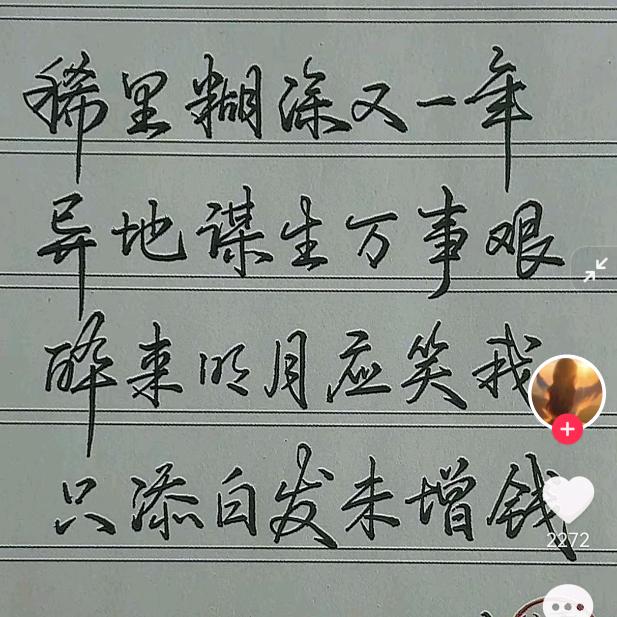 稀里糊涂又一年
异地谋生万事艰
醉来明月应笑我
只添白发未增钱
2272